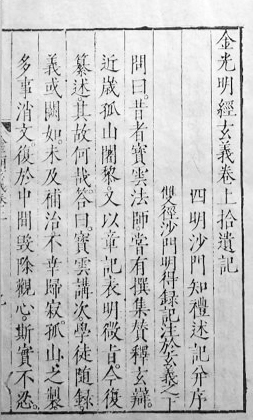 金光明經玄義卷上拾遺記
四明沙門知禮述記分序
雙徑沙門明得錄記注於玄義之下
問曰昔者寶雲法師嘗有撰集贊釋玄辯
近歲孤山闍黎又以章記表明微旨今復
纂述其故何哉答曰寶雲講次學徒隨錄
義或闕如未及補治不幸歸寂孤山之製
多事消文復於中間毀除觀心斯實不忍